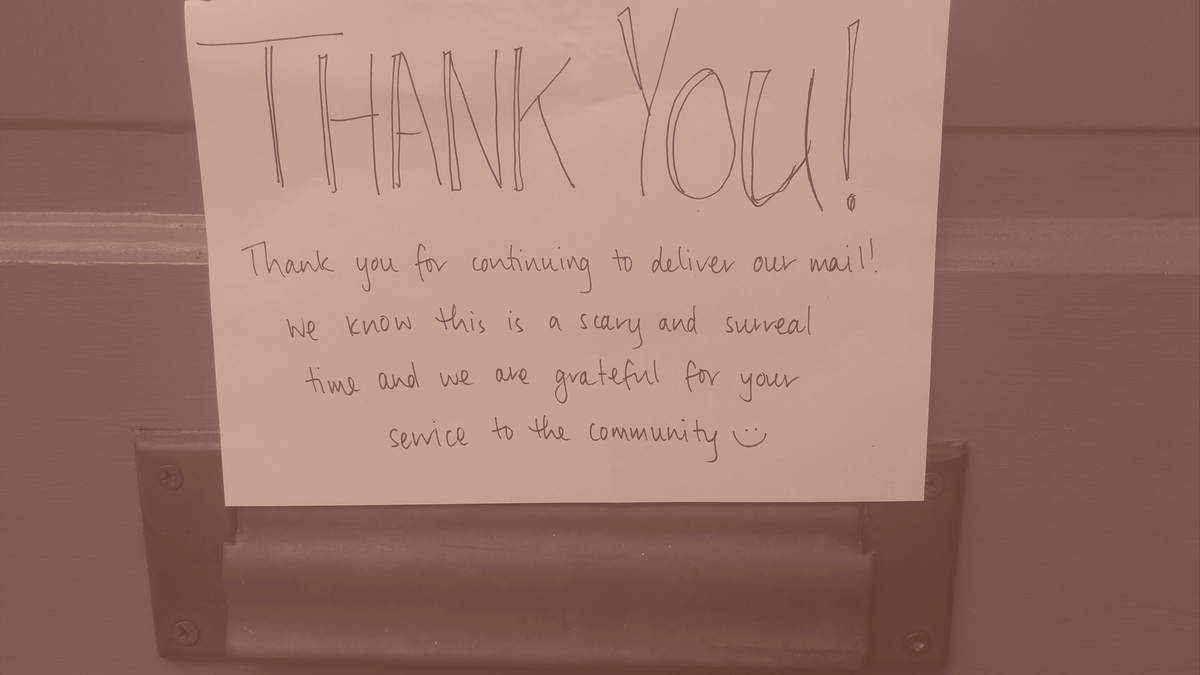 THANK YOU!
Thank you for continuing to deliver our mail!
We know this is a scary and surreal
time and we are grateful for your
service to the community